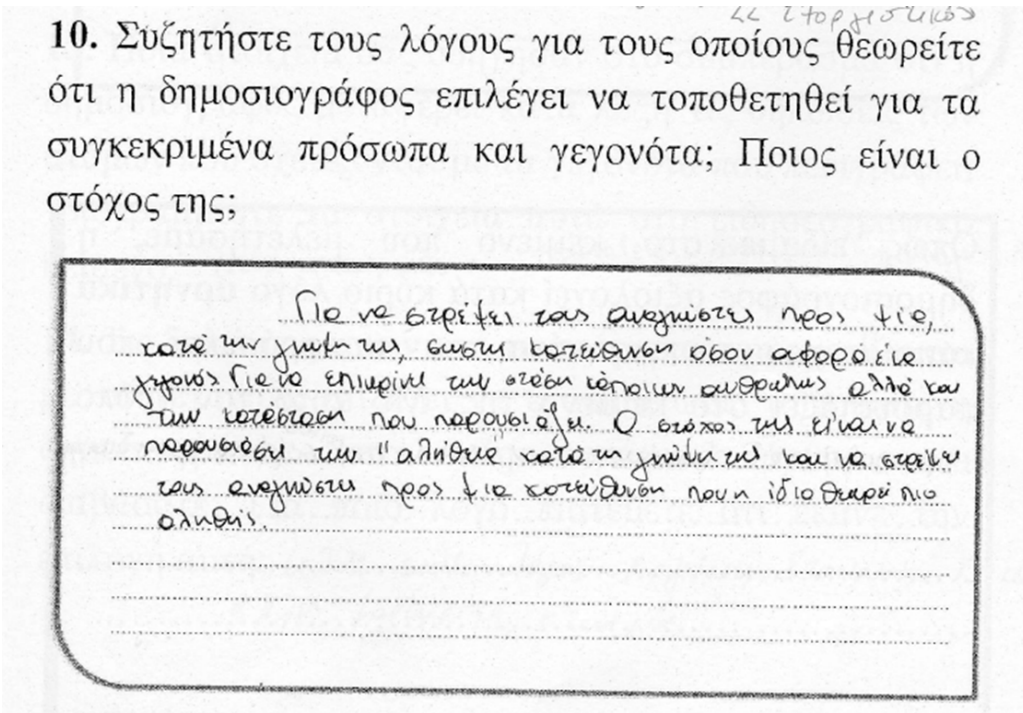 στοργιστικός
10. Συζητήστε τους λόγους για τους οποίους θεωρείτε
ότι η δημοσιογράφος επιλέγει να τοποθετηθεί για τα
συγκεκριμένα πρόσωπα και γεγονότα; Ποιος είναι ο
στόχος της;
Για να στρέψει τους αναγνώστες προς μία,
κατά την γνώμη της, σωστή κατεύθυνση όσον αφορά στα
γεγονός Για να επικρίνει την στάση κάποιων ανθρώπων αλλά και
την κατάσταση που παρουσιάζει. Ο στόχος της είναι να
παρουσιάσει την "αλήθεια" κατά τη γνώμη της και να στρέψει
τους αναγνώστες προς μια κατεύθυνση που η ίδια θεωρεί πιο
αληθής.